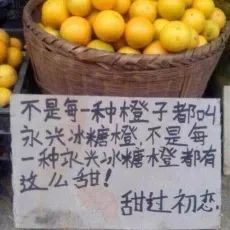 不是每一种橙子都叫
永兴冰糖橙,不是每
一种永兴冰糖橙都有
这么甜!
甜过初恋.